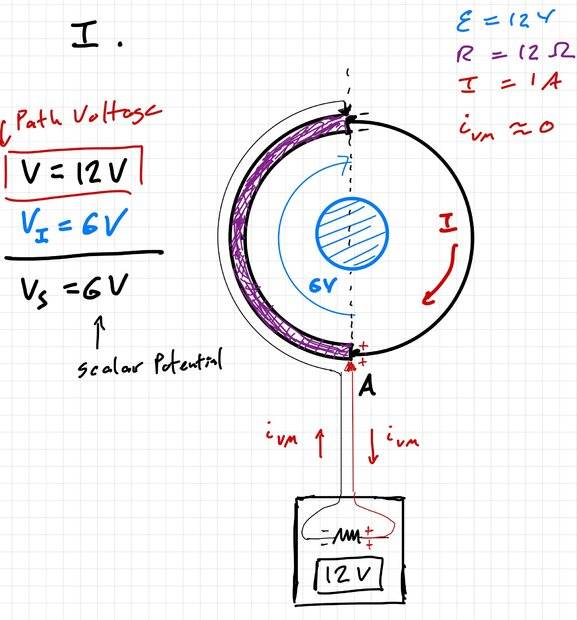 I.
ε = 12V
R = 12 Ω
I = 1A
i_VM ≈ 0
Path Voltage
V = 12V
V_I = 6V
V_S = 6V
Scalar Potential
=
I
6V
+
+
A
i_VM
i_VM
- +
- +
12V